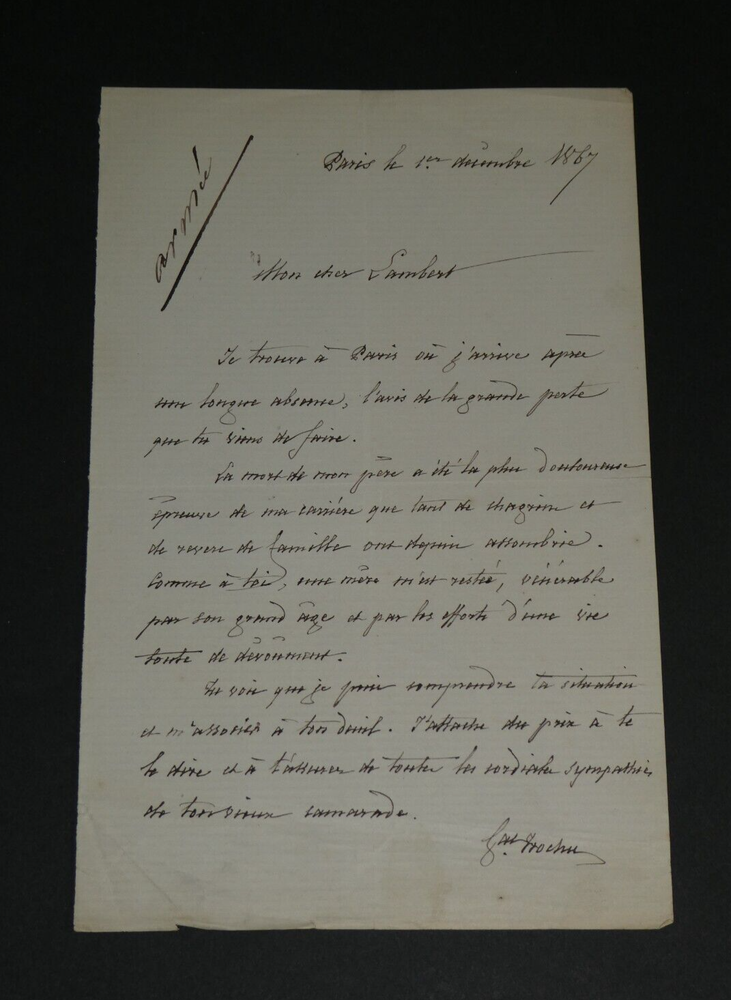 armée
Paris le 1er décembre 1867
Mon cher Lambert
Je trouve à Paris où j'arrive après
une longue absence, l'avis de la grande perte
que tu viens de faire.
La mort de mon père a été la plus douloureuse
épreuve de ma carrière que tant de chagrins et
de revers de famille ont depuis assombrie.
Comme à toi, une mère m'est restée, vénérable
par son grand âge et par les efforts d'une vie
toute de dévoument.
Tu vois que je puis comprendre ta situation
et m'associer à ton deuil. J'attache du prix à te
le dire et à t'assurer de toutes les cordiales sympathies
de ton vieux camarade.
Gal Trochu